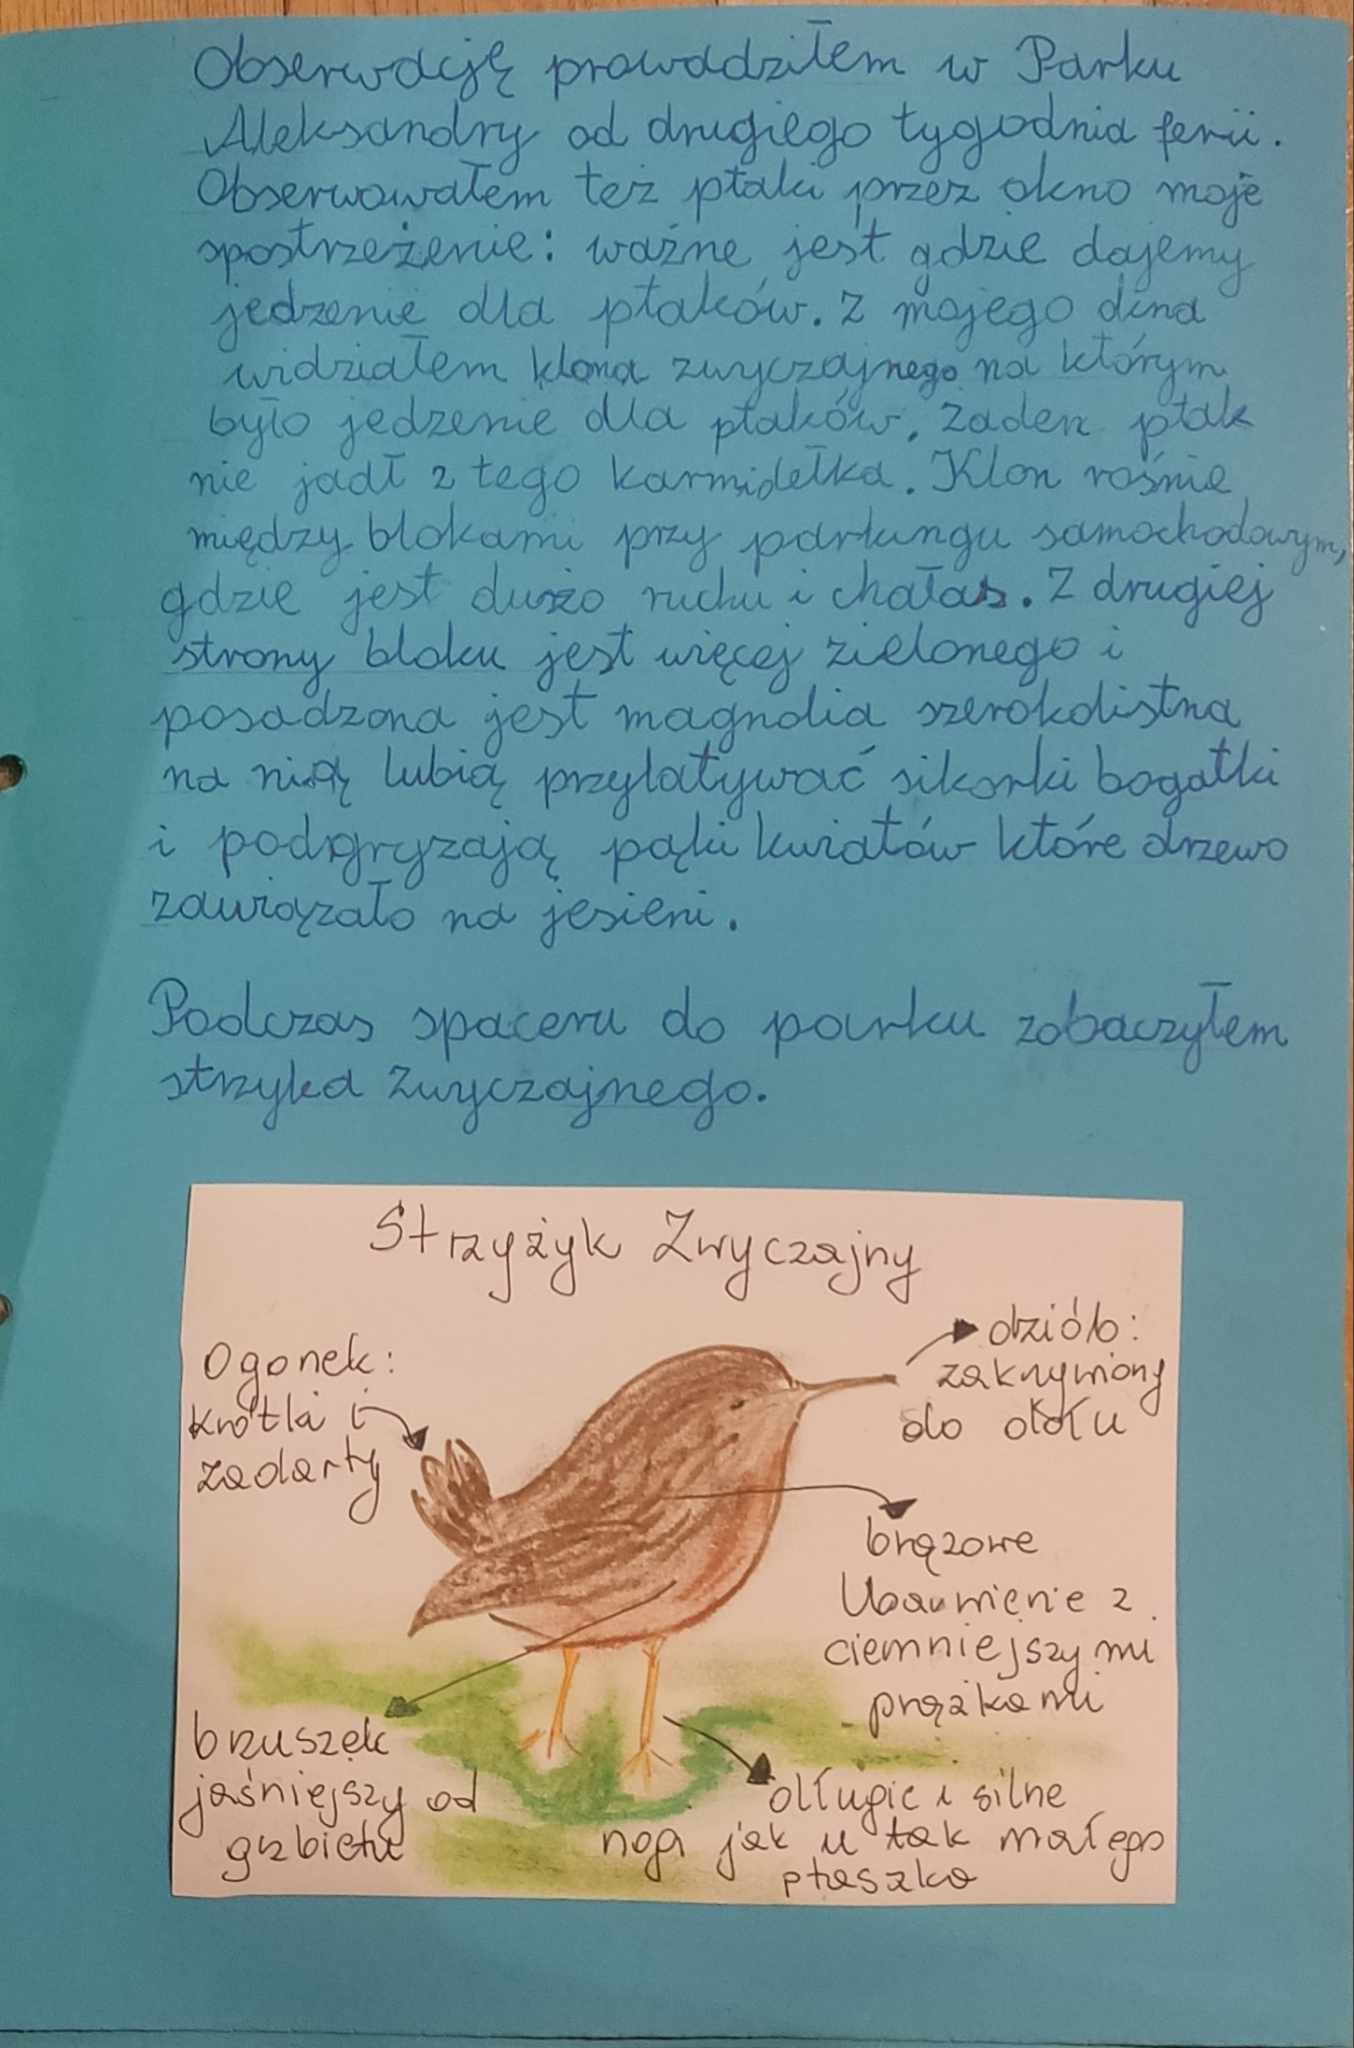 Obserwację prowadziłem w Parku
Aleksandry od drugiego tygodnia ferii.
Obserwowałem też ptaki przez okno moje
spostrzeżenie: ważne jest gdzie dajemy
jedzenie dla ptaków. Z mojego
widziałem klona zwyczajnego na którym
było jedzenie dla ptaków. Żaden ptak
nie jadł z tego karmidełka. Klon rośnie
między blokami przy parkingu samochodowym,
gdzie jest dużo ruchu i chałas. Z drugiej
strony bloku jest więcej zielonego i
posadzona jest magnolia szerokolistna
na nią lubią przylatywać sikorki bogatki
i podgryzają pąki kwiatów które drzewo
zawiązało na jesieni.
Podczas spaceru do parku zobaczyłem
strzyka zwyczajnego.
Strzyżyk Zwyczajny
Ogonek:
krótki i
zadarty
dziób:
zakrzywiony
do dołu
brązowe
Ubarwienie z
ciemniejszymi
prążkami
brzuszek
jaśniejszy od
grzbietu
długie i silne
nogi jak u tak małego
ptaszka